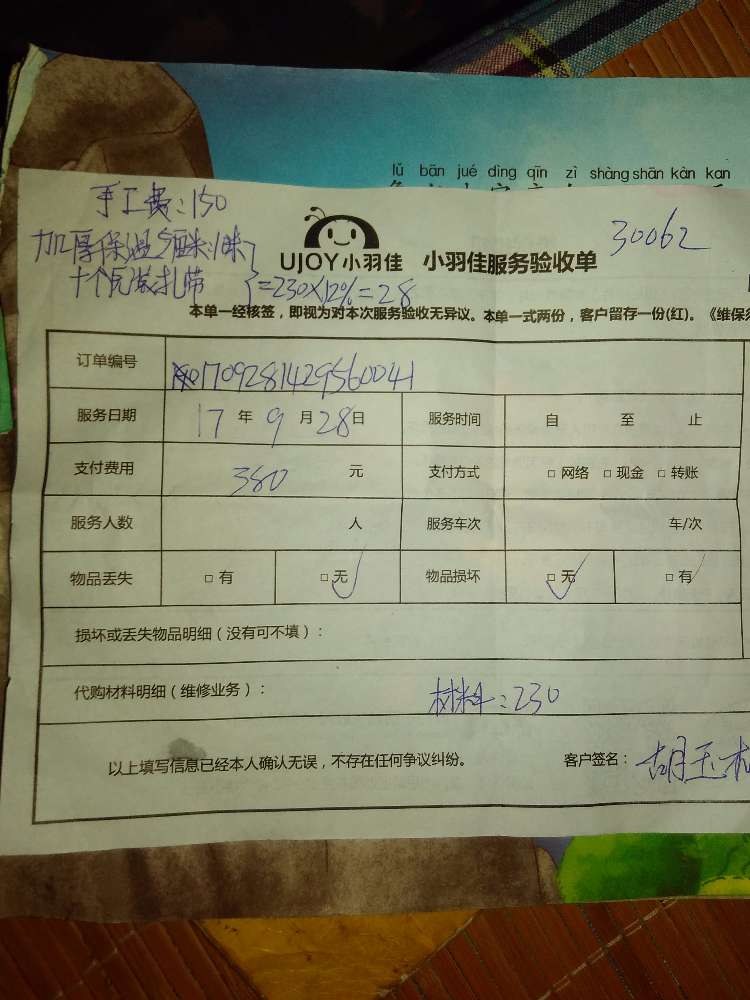 lǔ bān jué dìng qīn zì shàng shān kàn kan
手工费:150
30062
UJOY小羽佳 小羽佳服务验收单
加厚保温5厘米:1床
十个瓦装扎带
=230×12%=28
本单一经核签，即视为对本次服务验收无异议。本单一式两份，客户留存一份(红)。《维保
订单编号 01709281429560041
服务日期 17 年 9 月 28 日 服务时间 自 至 止
支付费用 380 元 支付方式 □ 网络 □ 现金 □ 转账
服务人数 人 服务车次 车/次
物品丢失 □ 有 □ 无 物品损坏 □ 无 □ 有
损坏或丢失物品明细（没有可不填）：
代购材料明细（维修业务）： 材料:230
以上填写信息已经本人确认无误，不存在任何争议纠纷。 客户签名： 胡玉